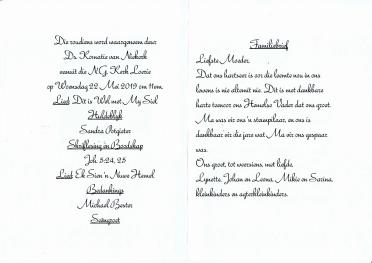 Die roudiens word waargeneem deur
Ds. Kematie van Niekerk
vanuit die N.G. Kerk Loerie
op Woensdag 22 Mei 2019 om 11vm.
Lied: Dit is Wel met My Siel
Huldeblyk
Sandra Potgieter
Skriflesing en Boodskap
Joh. 5:24, 25
Lied: Ek Sien 'n Nuwe Hemel
Bedankings
Michael Bester
Seëngroet
Familiebrief
Liefste Moeder.
Dat ons hartseer is oor die leemte nou in ons
lewens is nie altemit nie. Dit is met dankbare
harte teenoor ons Hemelse Vader dat ons groet.
Ma was vir ons 'n staatmaker, en ons is
dankbaar vir die jare wat Ma vir ons gespaar
was.
Ons groet, tot weersiens, met liefde.
Lynette, Johan en Leona, Mikie en Sarina,
kleinkinders en agterkleinkinders.